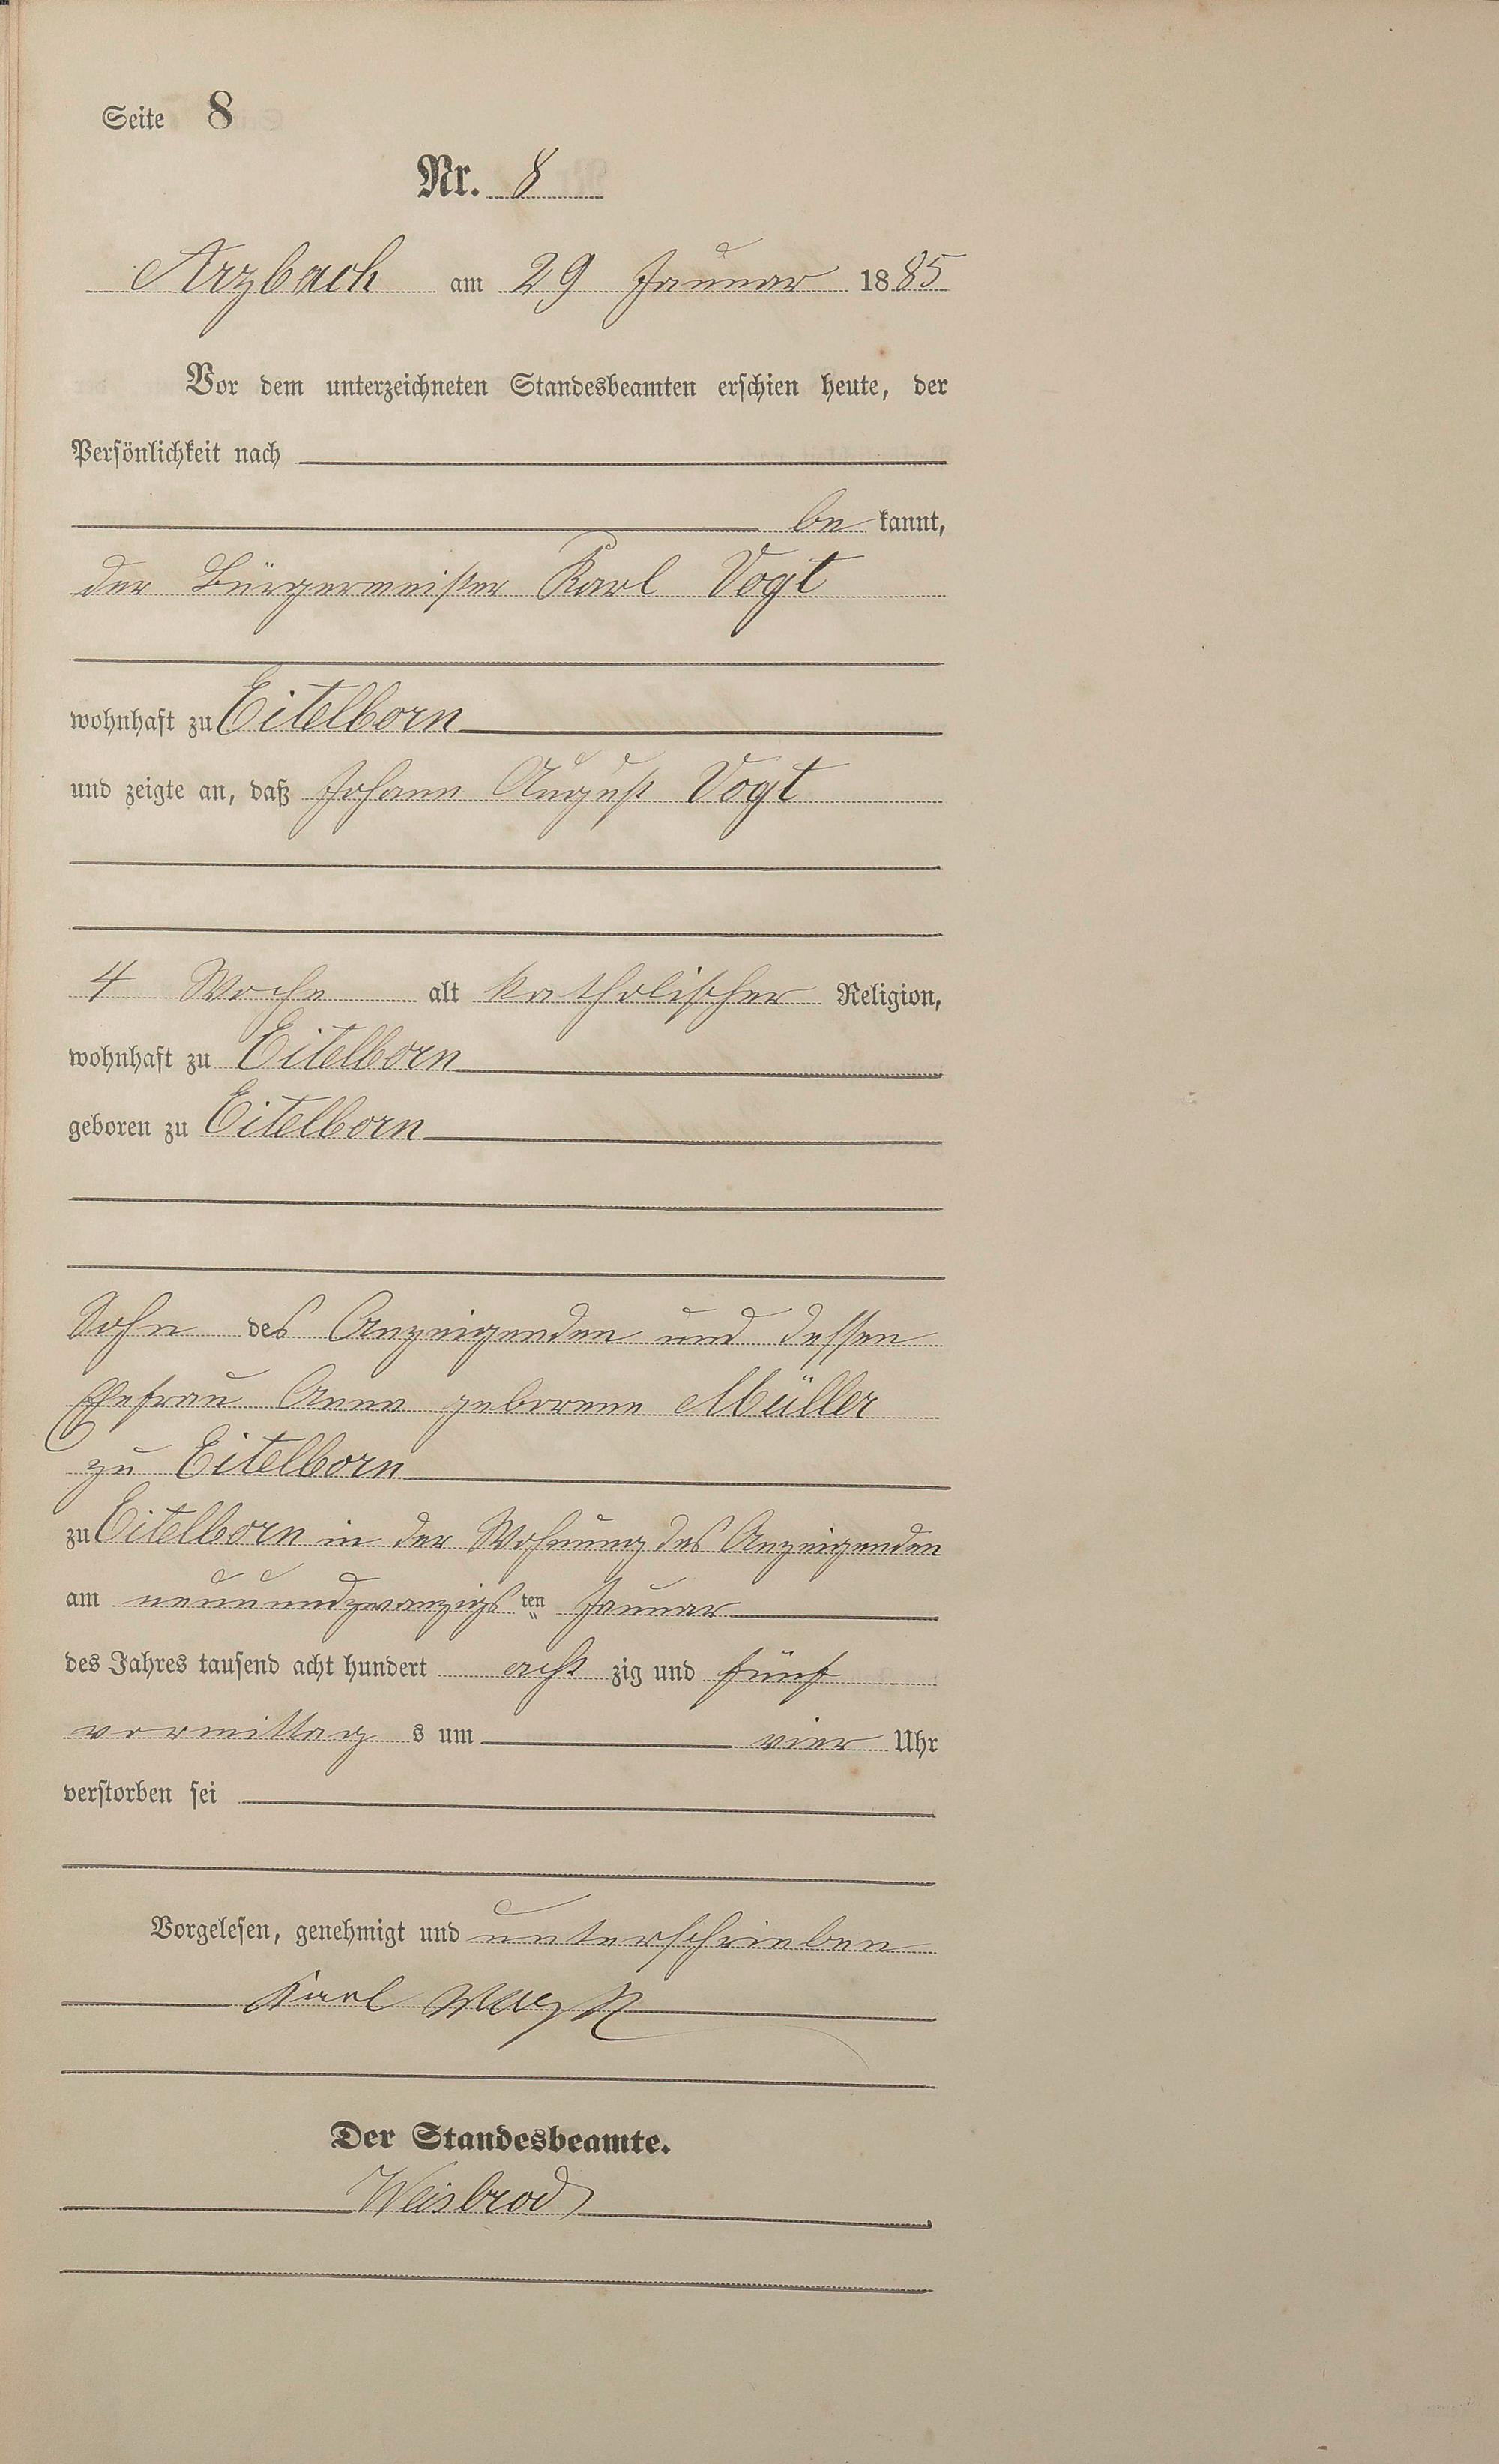 Seite 8
Nr. 8
Arzbach am 29 Januar 1885
Vor dem unterzeichneten Standesbeamten erschien heute, der
Persönlichkeit nach
be kannt,
der Bürgermeister Karl Vogt
wohnhaft zu Eitelborn
und zeigte an, daß Johann August Vogt
4 Woche alt katholischer Religion,
wohnhaft zu Eitelborn
geboren zu Eitelborn
Sohn des Anzeigenden und dessen
Ehefrau Anna geborene Müller
zu Eitelborn
zu Eitelborn in der Wohnung des Anzeigenden
am neunundzwanzigs ten Januar
des Jahres tausend acht hundert acht zig und fünf
vormittag s um vier Uhr
verstorben sei
Vorgelesen, genehmigt und unterschrieben
Karl Vogt
Der Standesbeamte.
Weisbrod